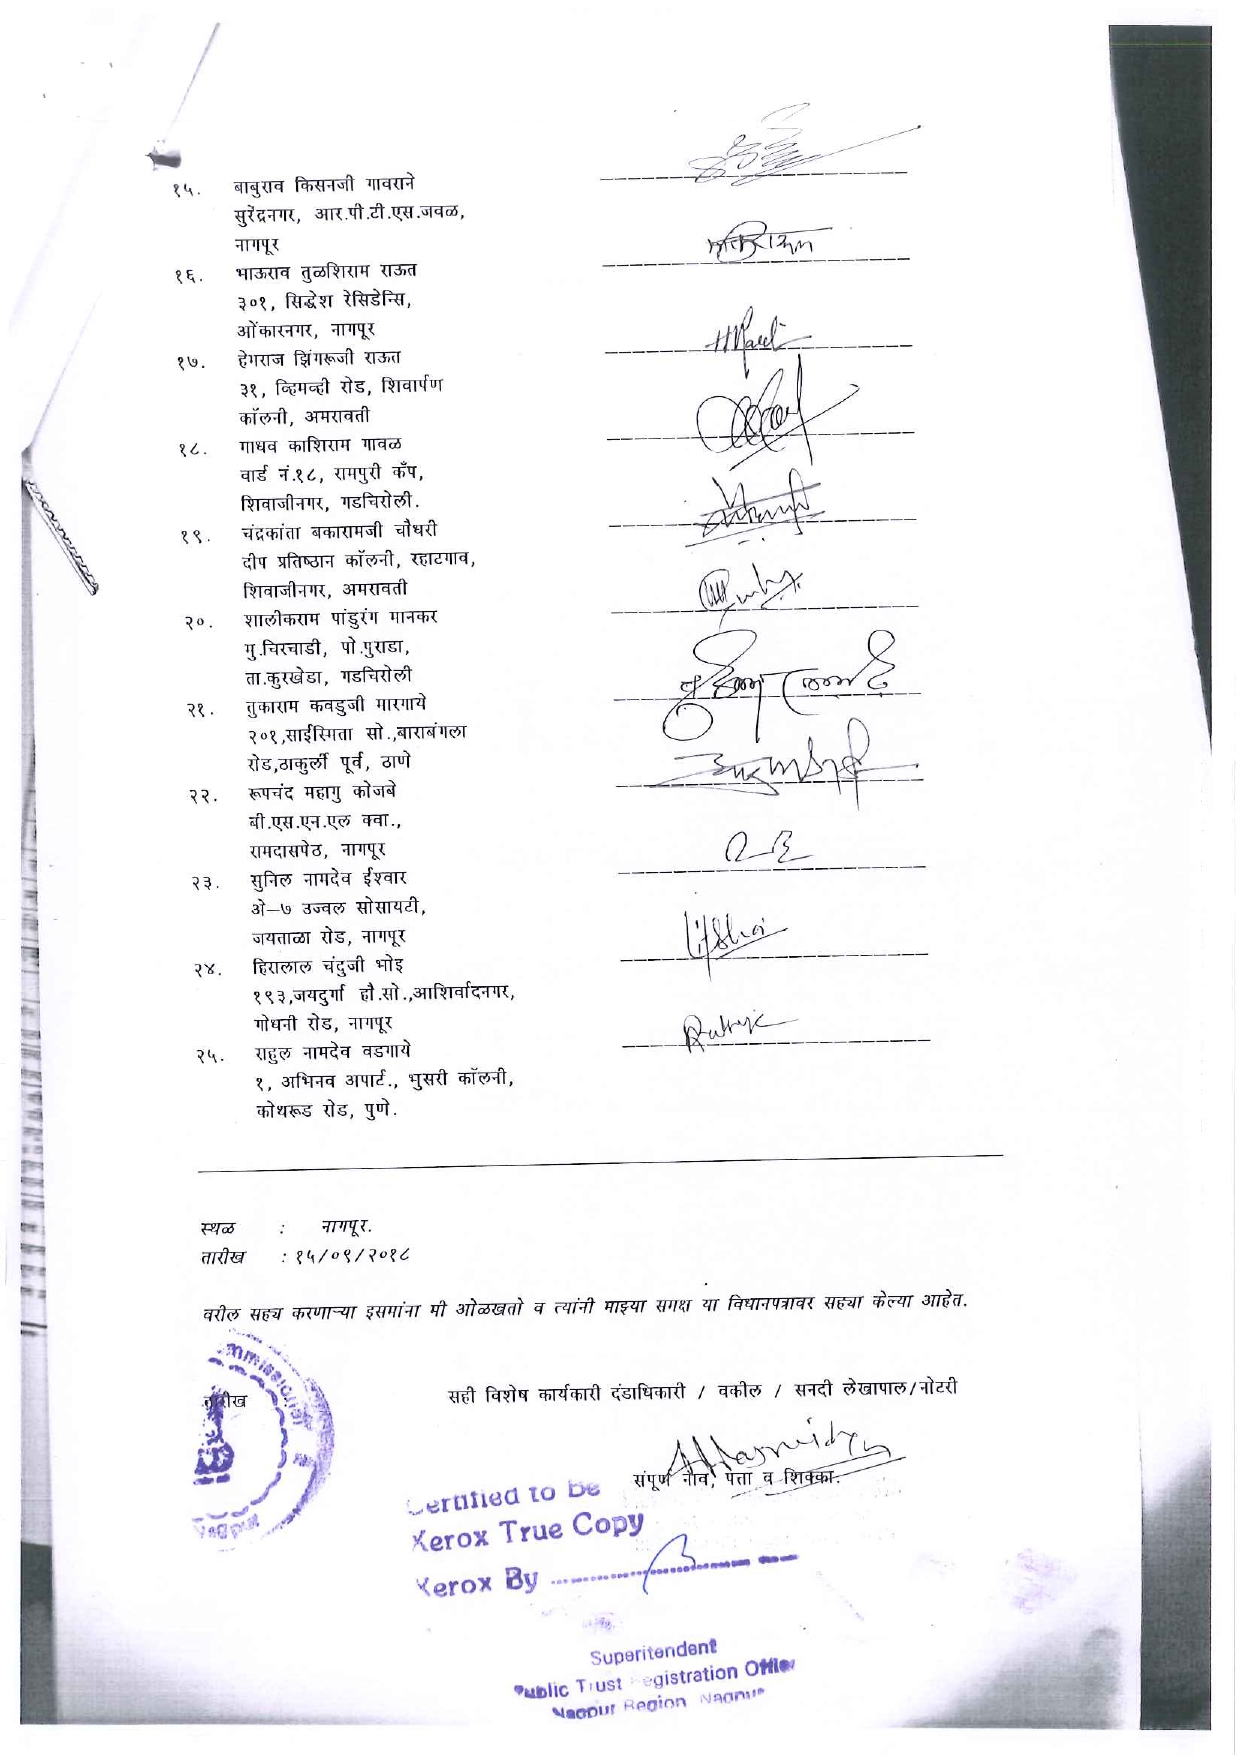 १५. बाबुराव किसनजी गावराने
सुरेंद्रनगर, आर.पी.टी.एस.जवळ,
नागपूर
१६. भाऊराव तुळशिराम राऊत
३०१, सिद्धेश रेसिडेन्सि,
ओंकारनगर, नागपूर
१७. हेमराज झिंगरूजी राऊत
३१, व्हिमव्ही रोड, शिवार्पण
कॉलनी, अमरावती
१८. माधव काशिराम गावळ
वार्ड नं.१८, रामपुरी कँप,
शिवाजीनगर, गडचिरोली.
१९. चंद्रकांता बकारामजी चौधरी
दीप प्रतिष्ठान कॉलनी, रहाटगाव,
शिवाजीनगर, अमरावती
२०. शालीकराम पांडुरंग मानकर
मु.चिरचाडी, पो.पुराडा,
ता.कुरखेडा, गडचिरोली
२१. तुकाराम कवडुजी मारगाये
२०१,साईस्मिता सो.,बाराबंगला
रोड,ठाकुर्ली पूर्व, ठाणे
२२. रूपचंद महागु कोजबे
बी.एस.एन.एल क्वा.,
रामदासपेठ, नागपूर
२३. सुनिल नामदेव ईश्वार
अे–७ उज्वल सोसायटी,
जयताळा रोड, नागपूर
२४. हिरालाल चंदुजी भोइ
१९३,जयदुर्गा हौ.सो.,आशिर्वादनगर,
गोधनी रोड, नागपूर
२५. राहुल नामदेव वडगाये
१, अभिनव अपार्ट., भुसरी कॉलनी,
कोथरूड रोड, पुणे.
स्थळ : नागपूर.
तारीख : १५/०९/२०१८
वरील सह्य करणाऱ्या इसमांना मी ओळखतो व त्यांनी माझ्या समक्ष या विधानपत्रावर सह्या केल्या आहेत.
तारीख
सही विशेष कार्यकारी दंडाधिकारी / वकील / सनदी लेखापाल/नोटरी
संपूर्ण नाव, पत्ता व शिक्का.
Certified to be
Xerox True Copy
Xerox By
Superitendent
Public Trust Registration Office
Nagpur Region Nagpur